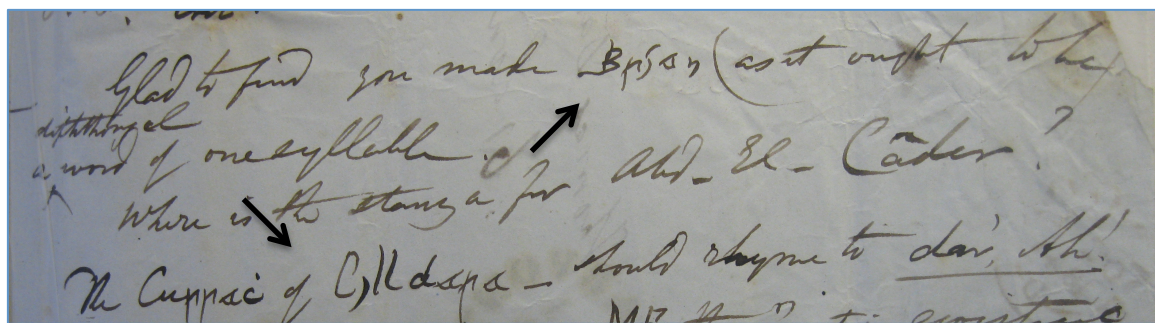 Glad to find you made Brian (as it ought to be
diphthongal
a word of one syllable.
Where is the stanza for Abd-El-Cāder?
The Curraċ of Cilldara – should rhyme to dar, Ah!